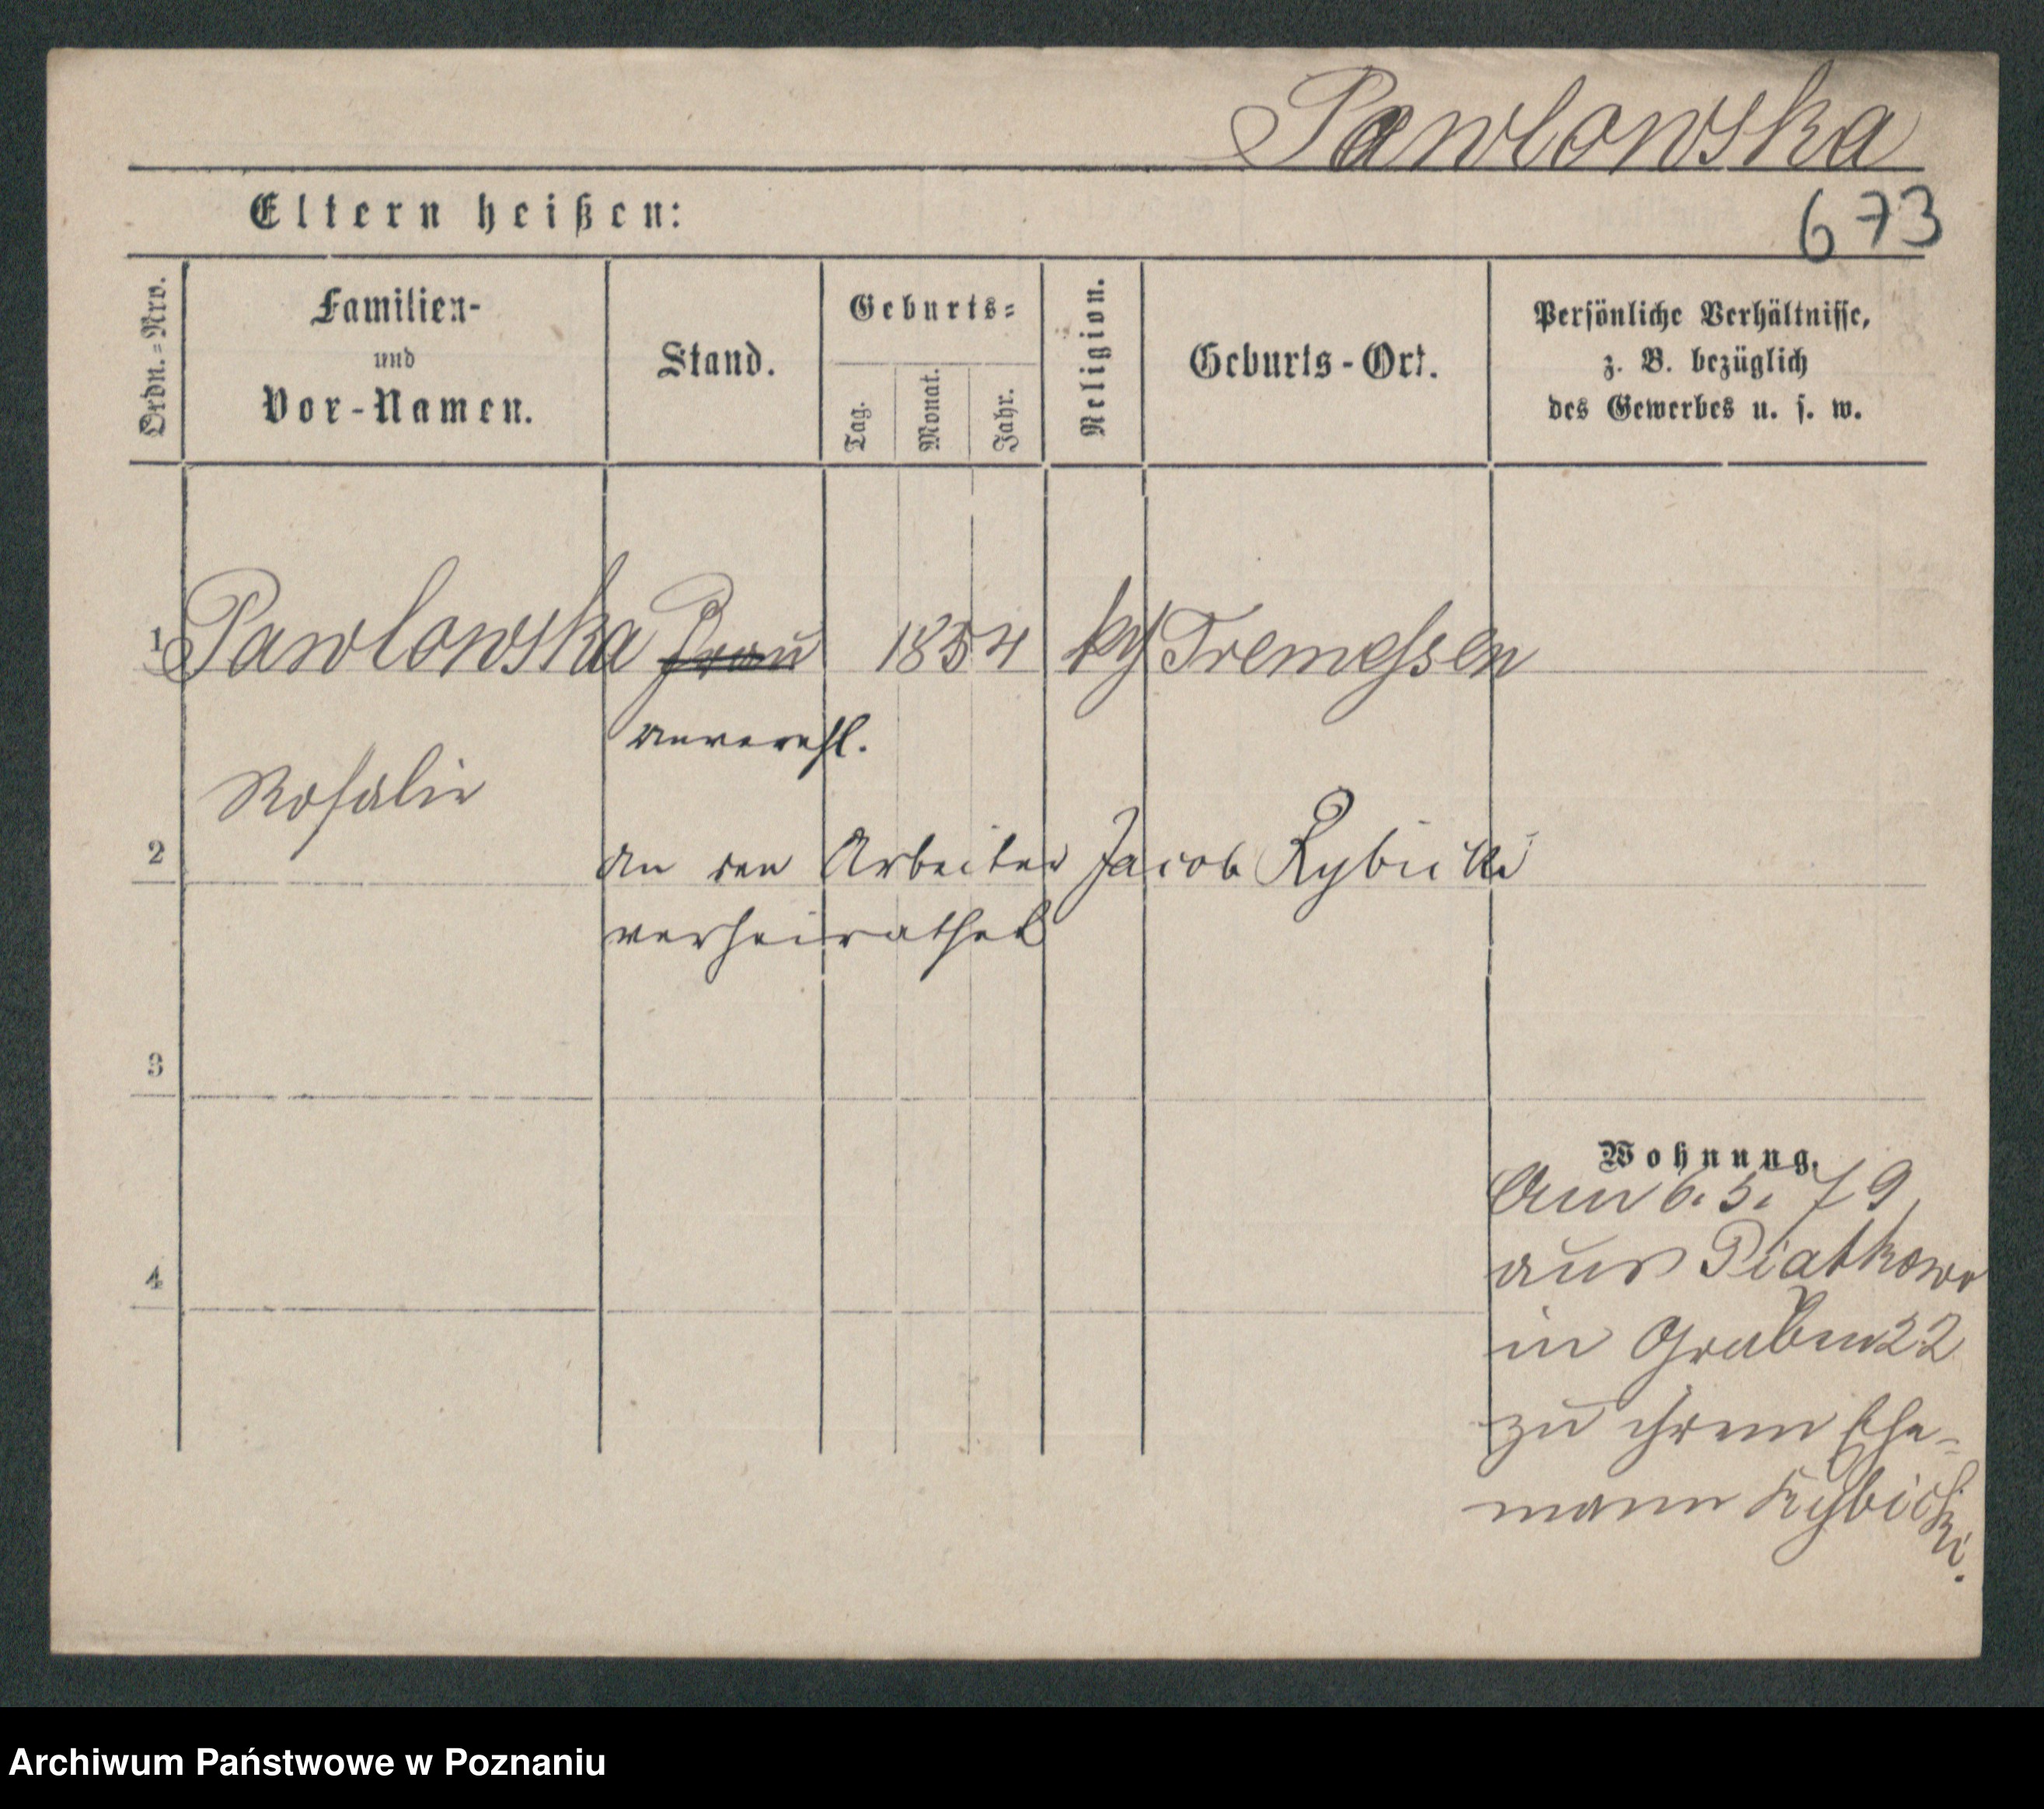 Pawlowska
Eltern heißen:
673
Ordn.=Nro.
Familien-
und
Vor-Namen.
Stand.
Geburts=
Tag.
Monat.
Jahr.
Religion.
Geburts-Ort.
Persönliche Verhältnisse,
z. B. bezüglich
des Gewerbes u. s. w.
1 Pawlowska Frau 1854 kth Tremessen
unverehl.
Rosalie
2 an den Arbeiter Jacob Rybicki
verheirathet
3
Wohnung.
Am 6. 5. 79
aus Piatkowo
4
in Graben 22
zu ihrem Ehe-
mann Rybicki.
Archiwum Państwowe w Poznaniu